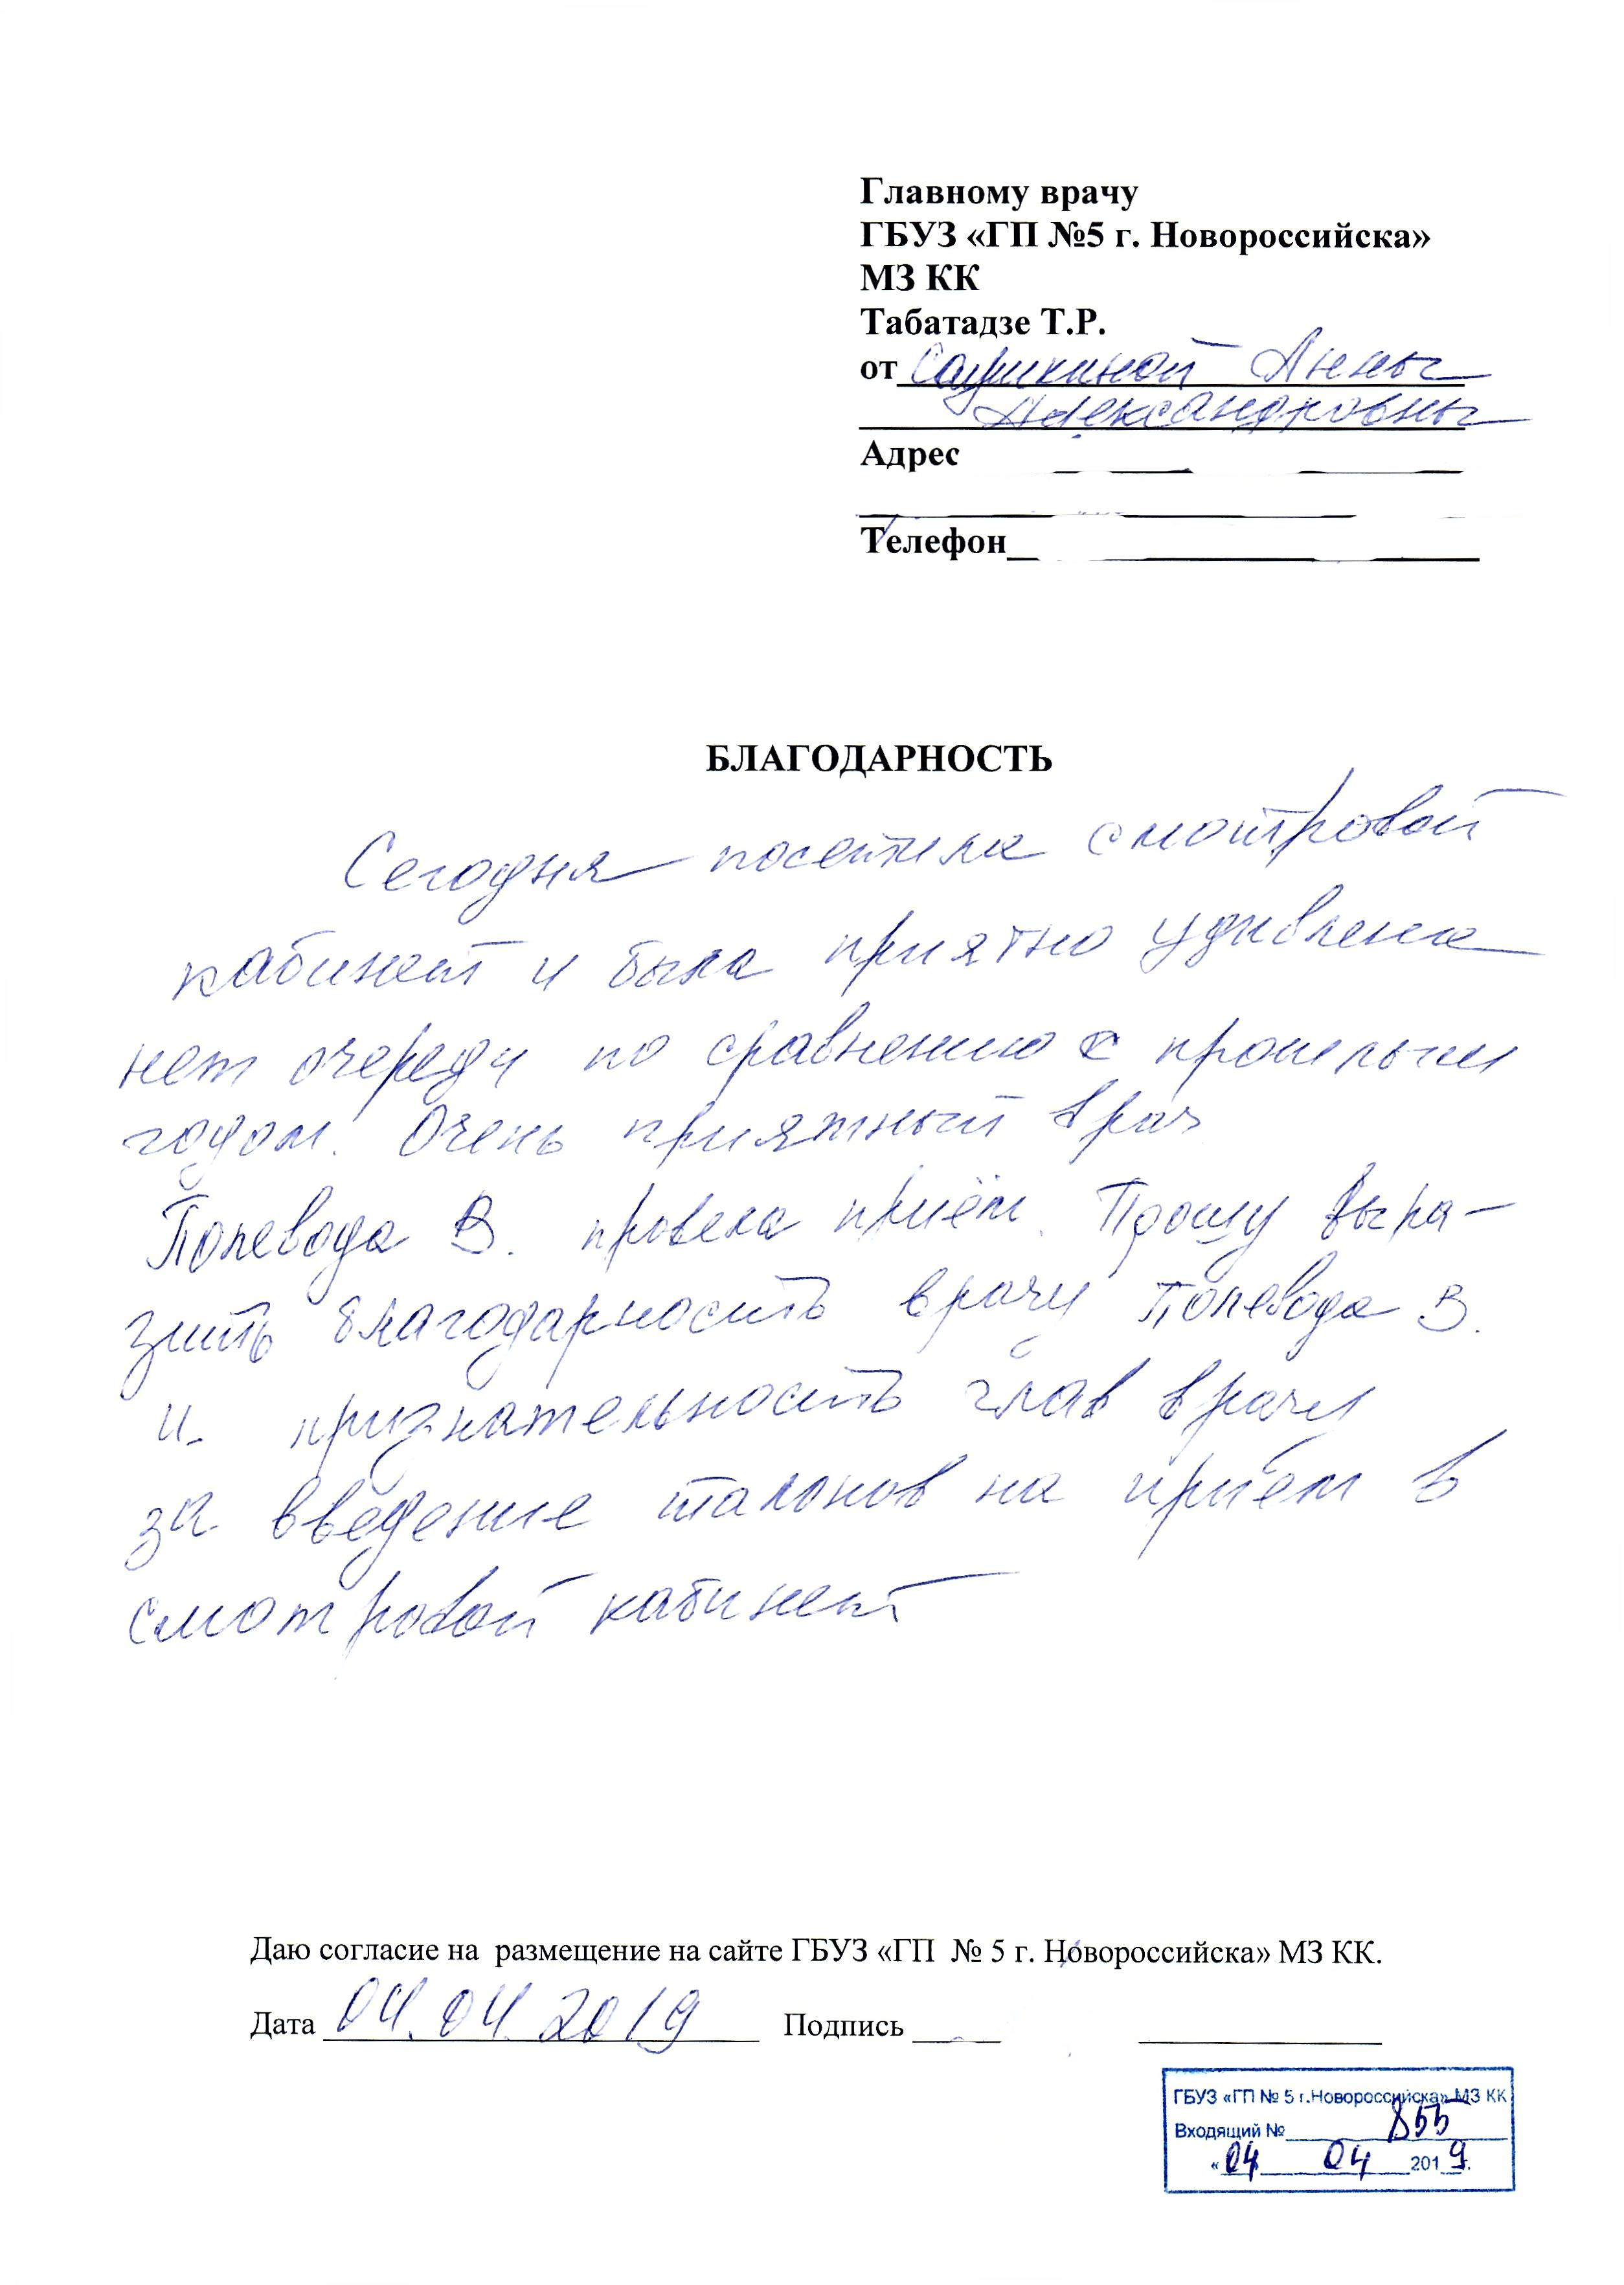 Главному врачу
ГБУЗ «ГП №5 г. Новороссийска»
МЗ КК
Табатадзе Т.Р.
от Саушкиной Анны
Александровны
Адрес
Телефон
БЛАГОДАРНОСТЬ
Сегодня посетила смотровой
кабинет и была приятно удивлена
нет очереди по сравнению с прошлым
годом. Очень приятный врач
Полевода В. провела приём. Прошу выра-
зить благодарность врачу Полевода В.
и признательность глав врачу
за введение талонов на приём в
смотровой кабинет
Даю согласие на размещение на сайте ГБУЗ «ГП № 5 г. Новороссийска» МЗ КК.
Дата 04.04.2019 Подпись
ГБУЗ «ГП № 5 г.Новороссийска» МЗ КК
Входящий № 855
«04 04 2019.